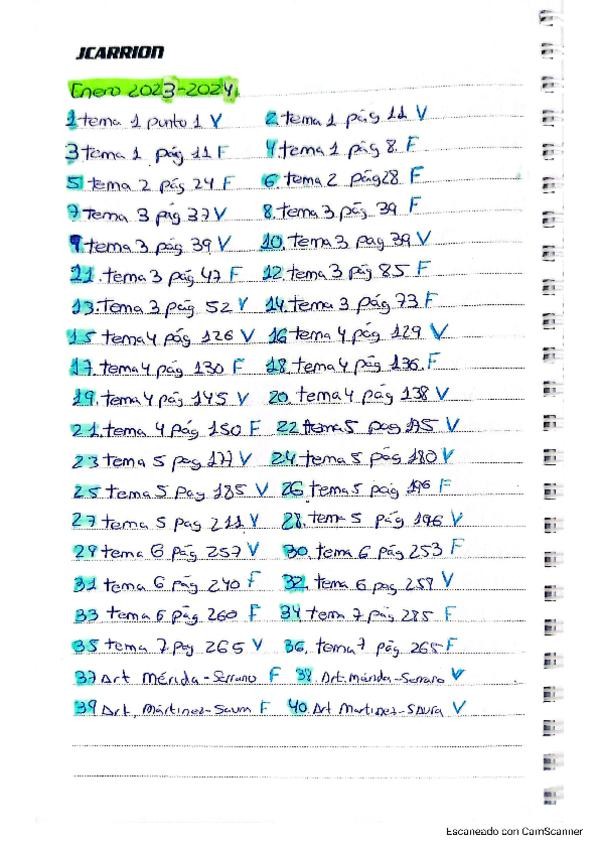 JCARRION
Enero 2023-2024.
1 tema 1 punto 1 V 2 tema 1 pág 11 V
3 tema 1 pág 11 F 4 tema 1 pág 8. F
5 tema 2 pág 24 F 6. tema 2 pág 28 F
7 tema 3 pág 37 V 8. tema 3 pág. 39 F
9 tema 3 pág 39 V 10. tema 3 pag 39 V
11. tema 3 pág 47 F 12. tema 3 pág 85 F
13. tema 3 pág 52 V 14. tema 3 pág 73 F
15 tema 4 pág 126 V 16 tema 4 pág 129 V
17. tema 4 pág 130 F 18. tema 4 pág 136. F
19. tema 4 pág 145 V 20. tema 4 pág 138 V
21. tema 4 pág 150 F 22 tema 5 pag 175 V
23 tema 5 pag 177 V 24 tema 5 pág 180 V
25 tema 5 Pag 185 V 26 tema 5 pág 196 F
27 tema 5 Pag 211 V 28. tema 5 pág 196 V
29 tema 6 pág 257 V 30. tema 6 pág 253 F
31 tema 6 pág 240 F 32. tema 6 pag 259 V
33 tema 6 pág 260 F 34 tema 7 pág 285 F
35 tema 7 pag 265 V 36. tema 7 pág 265 F
37 Art Mérida-Serrano F 38. Art. Mérida-Serrano V
39 Art. Martinez-Saura F 40. Art Martinez-Saura V
Escaneado con CamScanner